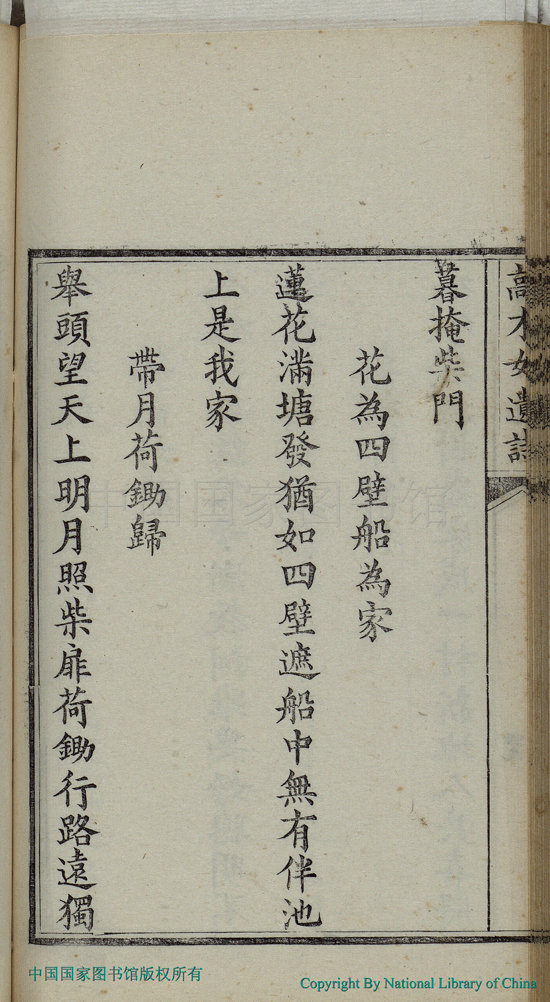 高才女遺詩
暮掩柴門
花為四壁船為家
蓮花滿塘發猶如四壁遮船中無有伴池
上是我家
帶月荷鋤歸
舉頭望天上明月照柴扉荷鋤行路遠獨
中国国家图书馆
中国国家图书馆版权所有
Copyright By National Library of China